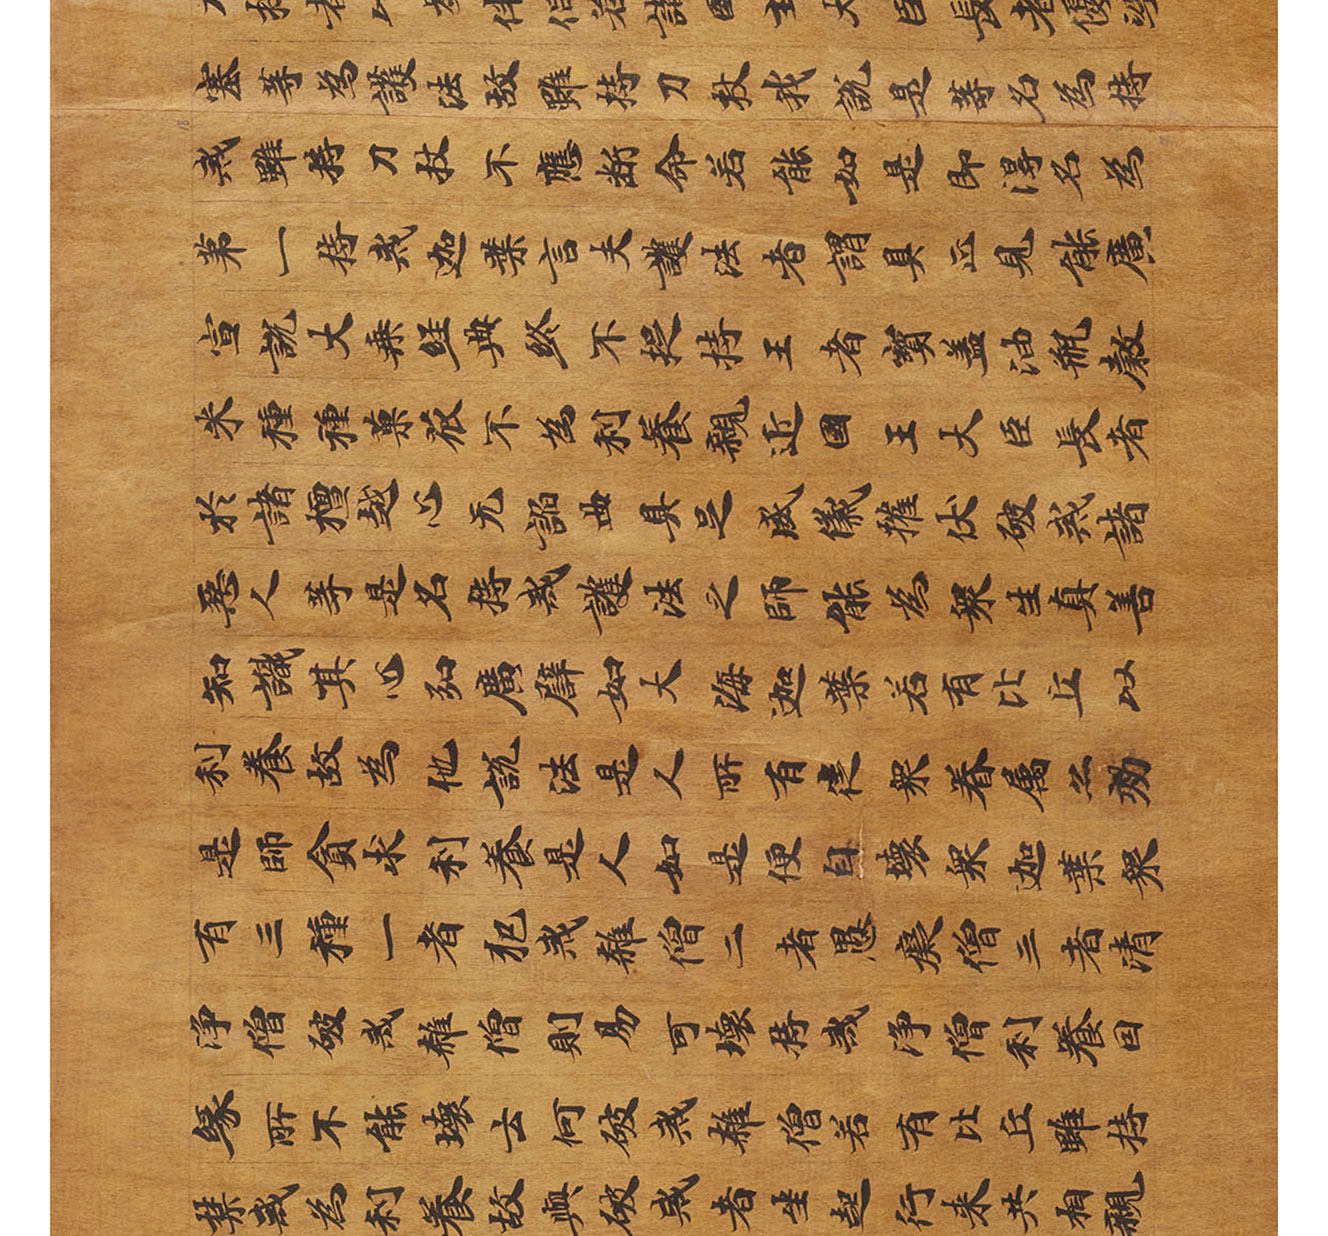 者以為伴侶若諸國王大臣長者優婆
塞等為護法故雖持刀杖我說是等名為持
戒雖持刀杖不應斷命若能如是即得名為
第一持戒迦葉言夫護法者謂具正見能廣
宣說大乗經典終不捉持王者寶盖油瓶穀
米種種菓蓏不為利養親近國王大臣長者
於諸檀越心无諂曲具足威儀摧伏破戒諸
惡人等是名持戒護法之師能為眾生真善
知識其心弘廣譬如大海迦葉若有比丘以
利養故為他說法是人所有徒眾眷属亦効
是師貪求利養是人如是便自壞眾迦葉眾
有三種一者犯戒雜僧二者愚癡僧三者清
淨僧破戒雜僧則易可壞持戒淨僧利養因
緣所不能壞云何破戒雜僧若有比丘雖持
禁戒為利養故與破戒者坐起行来共相親